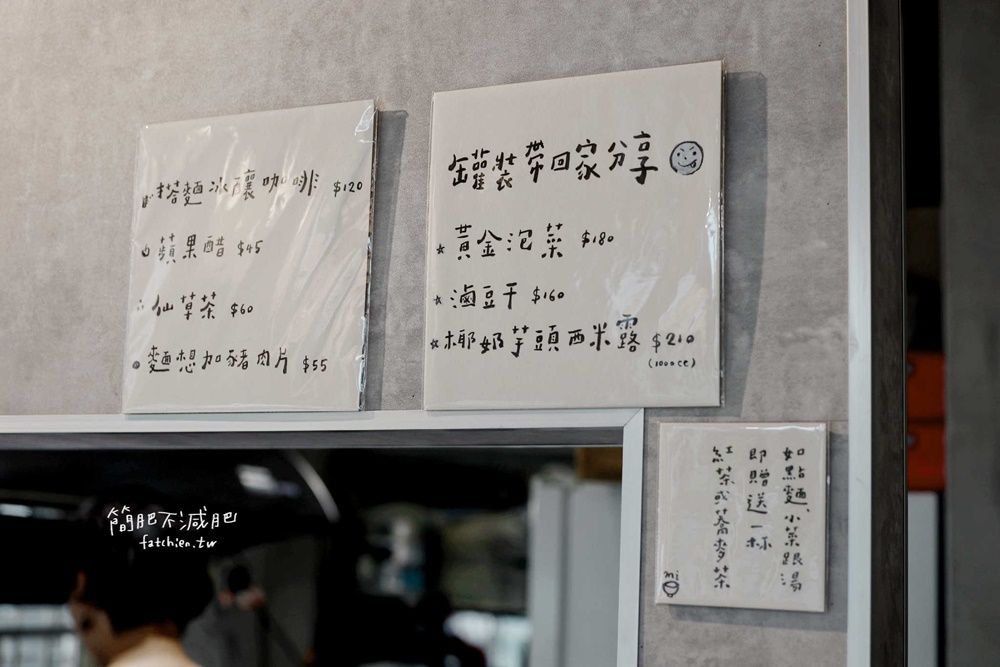 搭麵冰釀咖啡 $120
蘋果醋 $45
仙草茶 $60
麵想加豬肉片 $55
罐裝帶回家分享
☆黃金泡菜 $180
☆滷豆干 $160
☆椰奶芋頭西米露 $210
(1000cc)
如點麵、小菜跟湯
即贈送一杯
紅茶或蕎麥茶
mi
簡肥不減肥
fatchien.tw